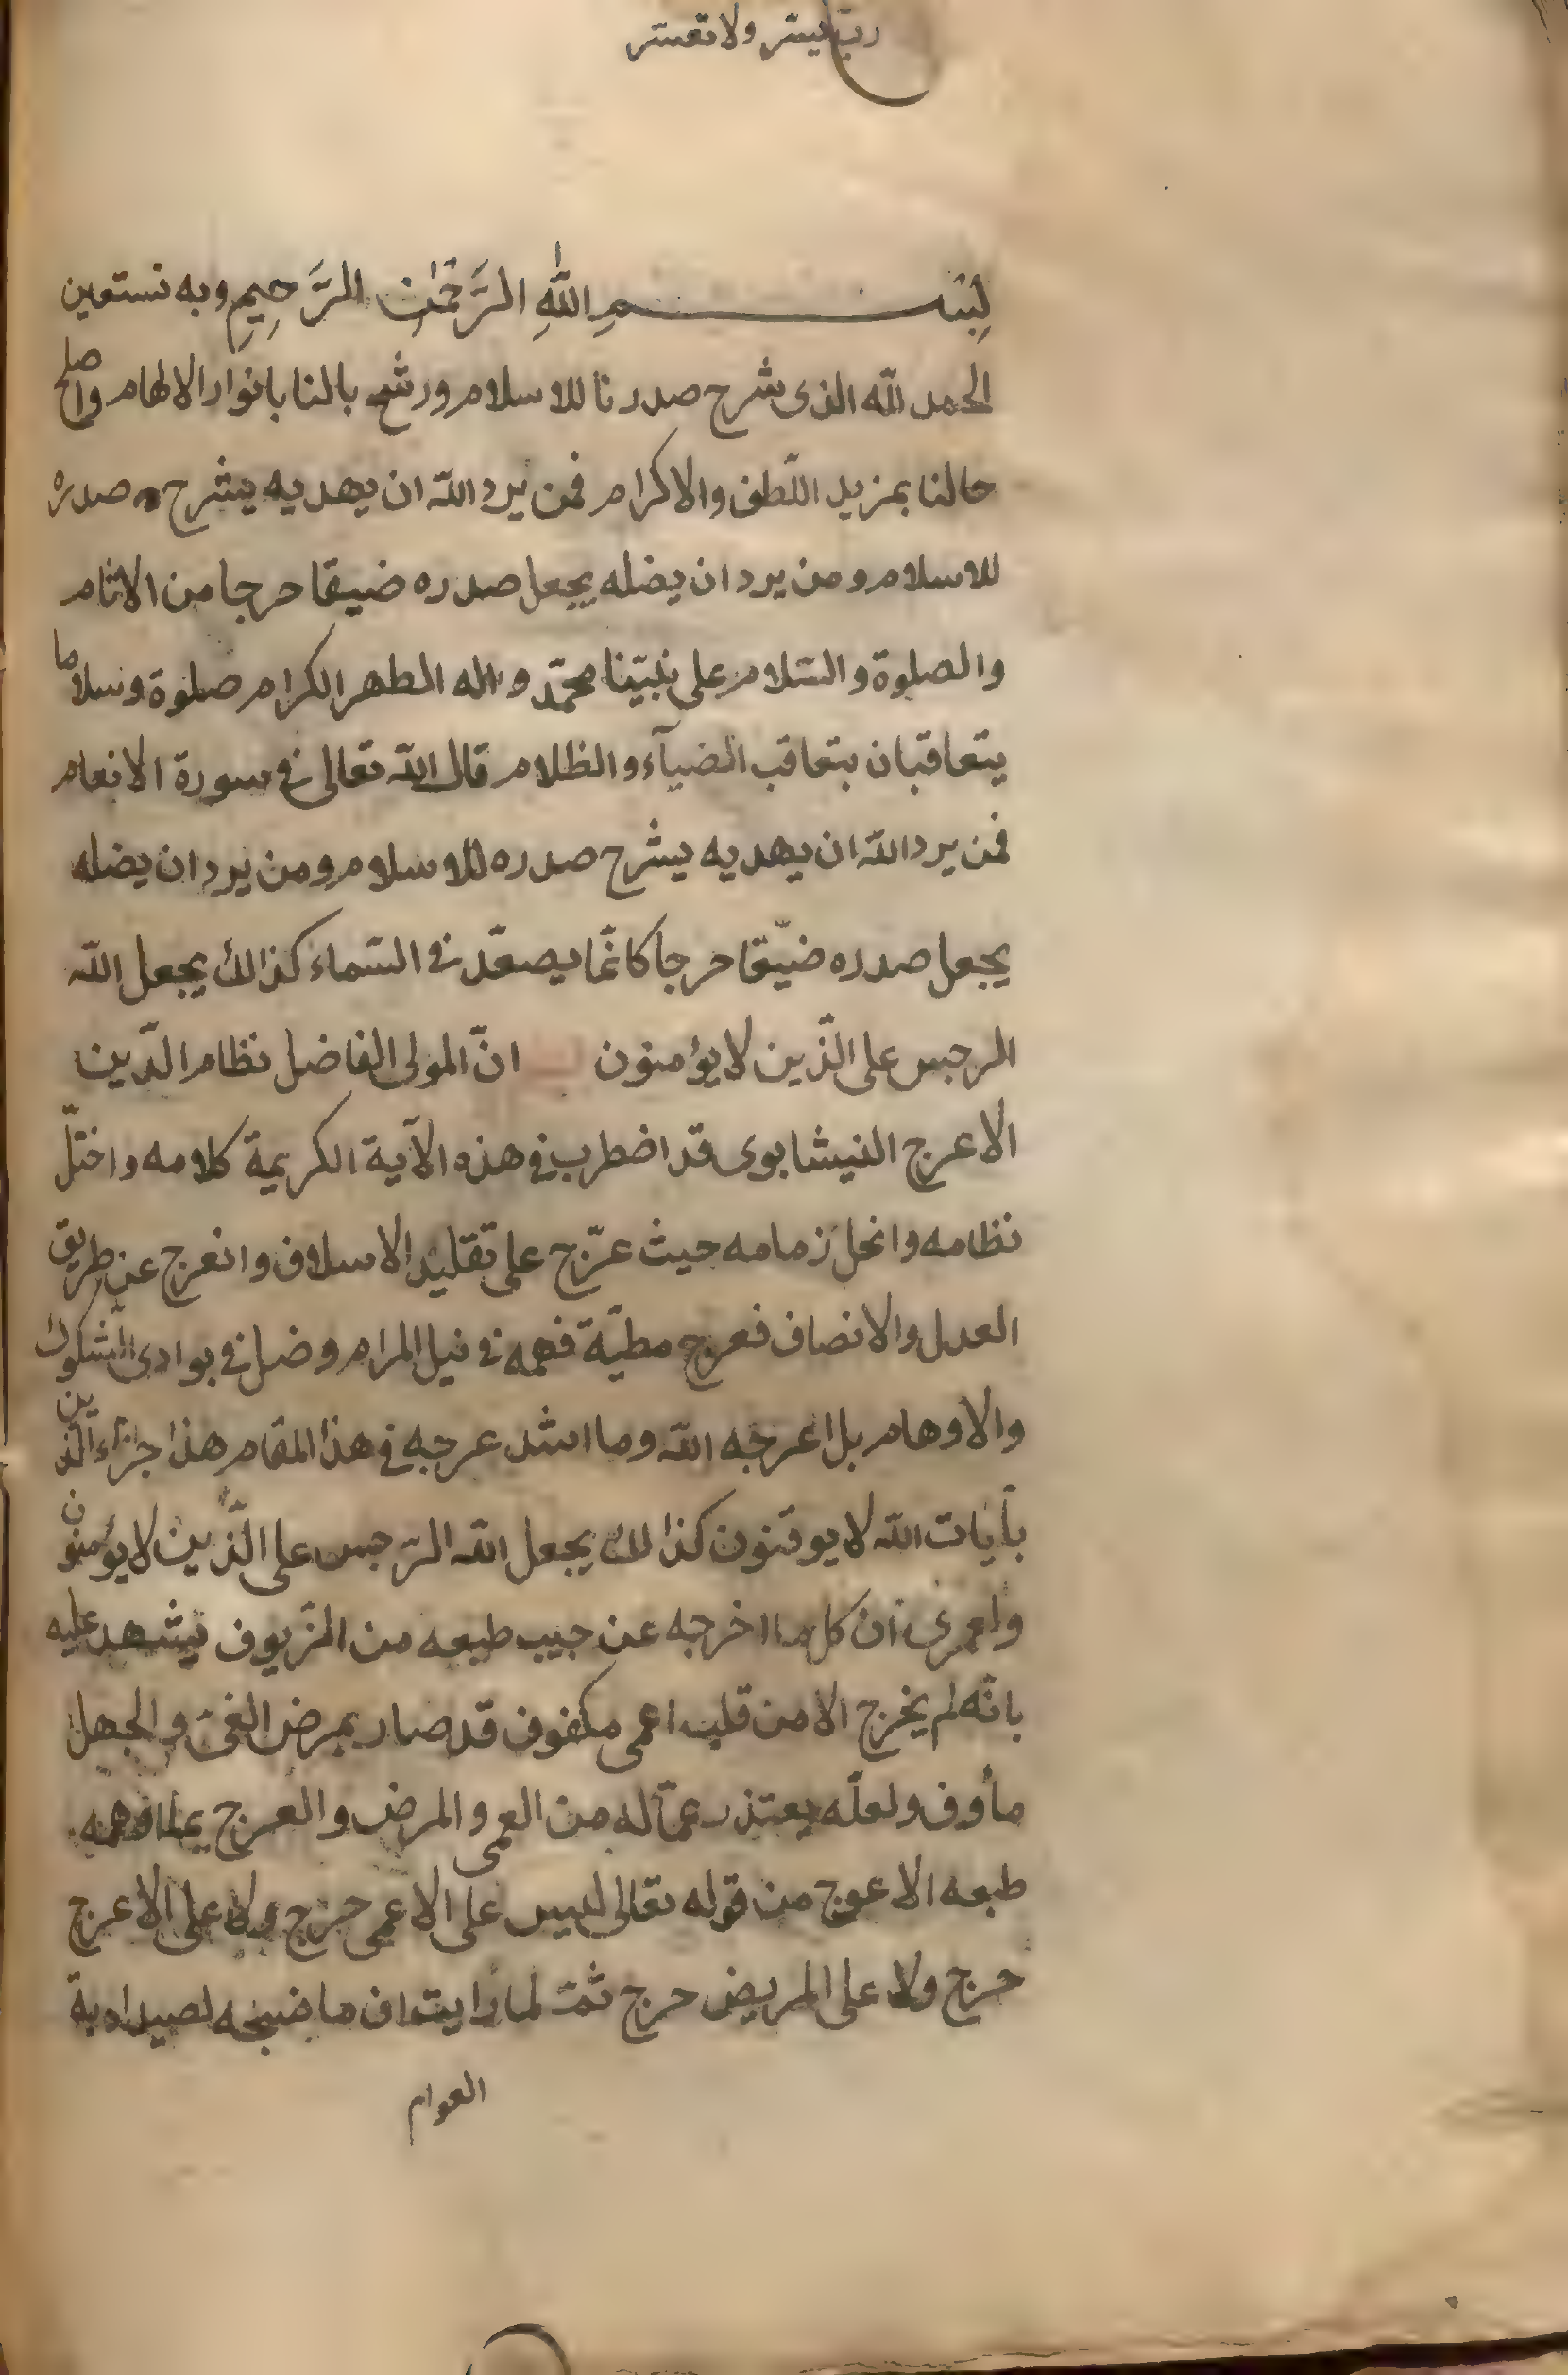 رب يسر ولا تعسر
بسم اللهِ الرَّحمٰن الرَّحِيمِ وبه نستعين
الحمد لله الذى شرح صدرنا للاسلام ورشح بالنا بانوار الالهام واصلح
حالنا بمزيد اللّطف والاكرام فمن يرد اللّه ان يهديه يشرح صدره
للاسلام ومن يرد ان يضله يجعل صدره ضيقا حرجا من الاثام
والصلوة والسّلام على نبيّنا محمّد واله الطهر الكرام صلوة وسلاما
يتعاقبان بتعاقب الضيآء والظلام قال اللّه تعالى فى سورة الانعام
فمن يرد اللّه ان يهديه يشرح صدره للاسلام ومن يرد ان يضله
يجعل صدره ضيّقا حرجا كانّما يصعّد فى السّماء كذالك يجعل اللّه
الرجس على الّذين لا يؤمنون انّ المولى الفاضل نظام الدّين
الاعرج النيشابوى قد اضطرب فى هذه الآية الكريمة كلامه واختلّ
نظامه وانحل زمامه حيث عرّج على تقليد الاسلاف وانعرج عن طريق
العدل والانصاف فعرج مطيّة فهمه فى نيل المرام وضل فى بوادى الشكوك
والاوهام بل اعرجه اللّه وما اشد عرجه فى هذا المقام هذا جزاء الّذين
بآيات اللّه لا يوقنون كذالك يجعل اللّه الرّجس على الّذين لا يؤمنون
ولعمرى ان كل ما اخرجه عن جيب طبعه من الزيوف يشهد عليه
بانّه لم يخرج الا من قلب اعمى مكفوف قد صار بمرض الغىّ والجهل
مأوف ولعلّه يعتذر عمّا له من العمى والمرض والعرج بما افهمه
طبعه الاعوج من قوله تعالى ليس على الاعمى حرج ولا على الاعرج
حرج ولا على المريض حرج ثمّ لما رايت ان ما لصيد
العوام